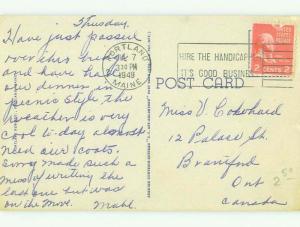 Thursday.
Have just passed
over this bridge
and have had
our dinner in
picnic style, the
weather is very
cool to-day almost
need our coats.
Sorry made such a
mess of writing the
last one but was
on the move. Mabl.
PORTLAND
7
30 PM
1949
MAINE
HIRE THE HANDICAP
IT'S GOOD BUSINE
2 CENTS 2
POST CARD
Miss V. Cowhard
12 Palace St.
Brantford
Ont
Canada